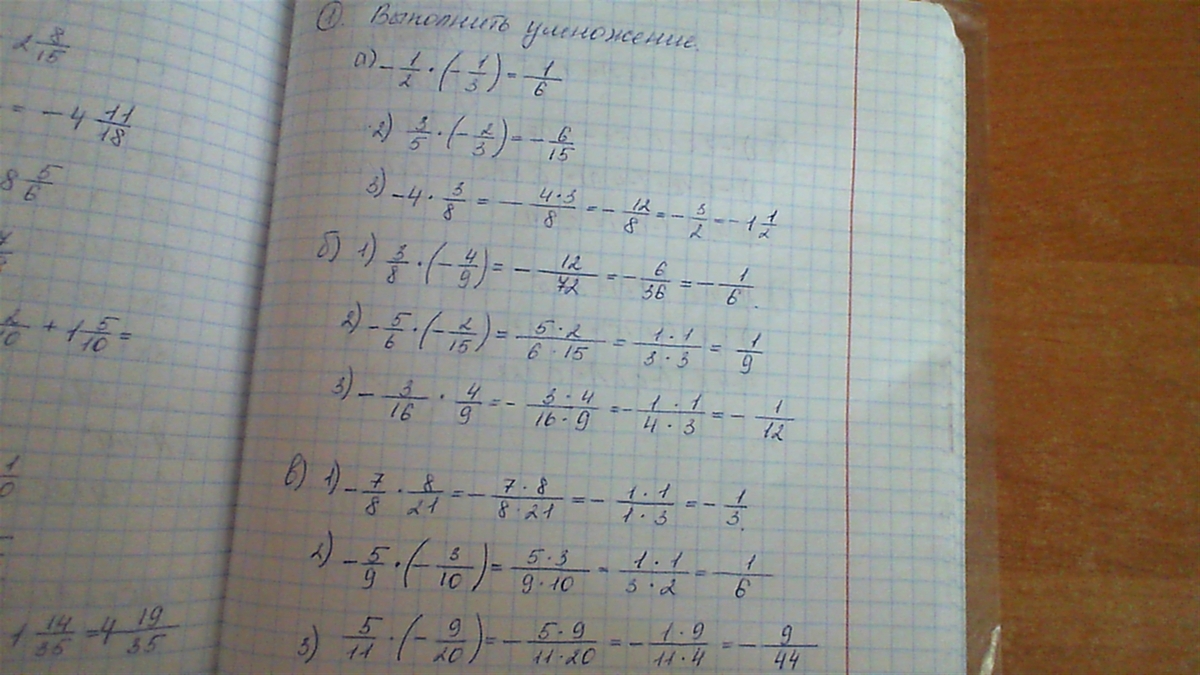 2 8/15
= -4 11/18
8 5/6
2/10 + 1 5/10 =
1/0
1 14/35 = 4 19/35
①. Выполнить умножение.
а) -1/2 · (-1/3) = 1/6
2) 3/5 · (-2/3) = -6/15
3) -4 · 3/8 = -4·3/8 = -12/8 = -3/2 = -1 1/2
б) 1) 3/8 · (-4/9) = -12/72 = -6/36 = -1/6.
2) -5/6 · (-2/15) = 5·2/6·15 = 1·1/3·3 = 1/9
3) -3/16 · 4/9 = -3·4/16·9 = -1·1/4·3 = -1/12
в) 1) -7/8 · 8/21 = -7·8/8·21 = -1·1/1·3 = -1/3.
2) -5/9 · (-3/10) = 5·3/9·10 = 1·1/3·2 = 1/6
3) 5/11 · (-9/20) = -5·9/11·20 = -1·9/11·4 = -9/44